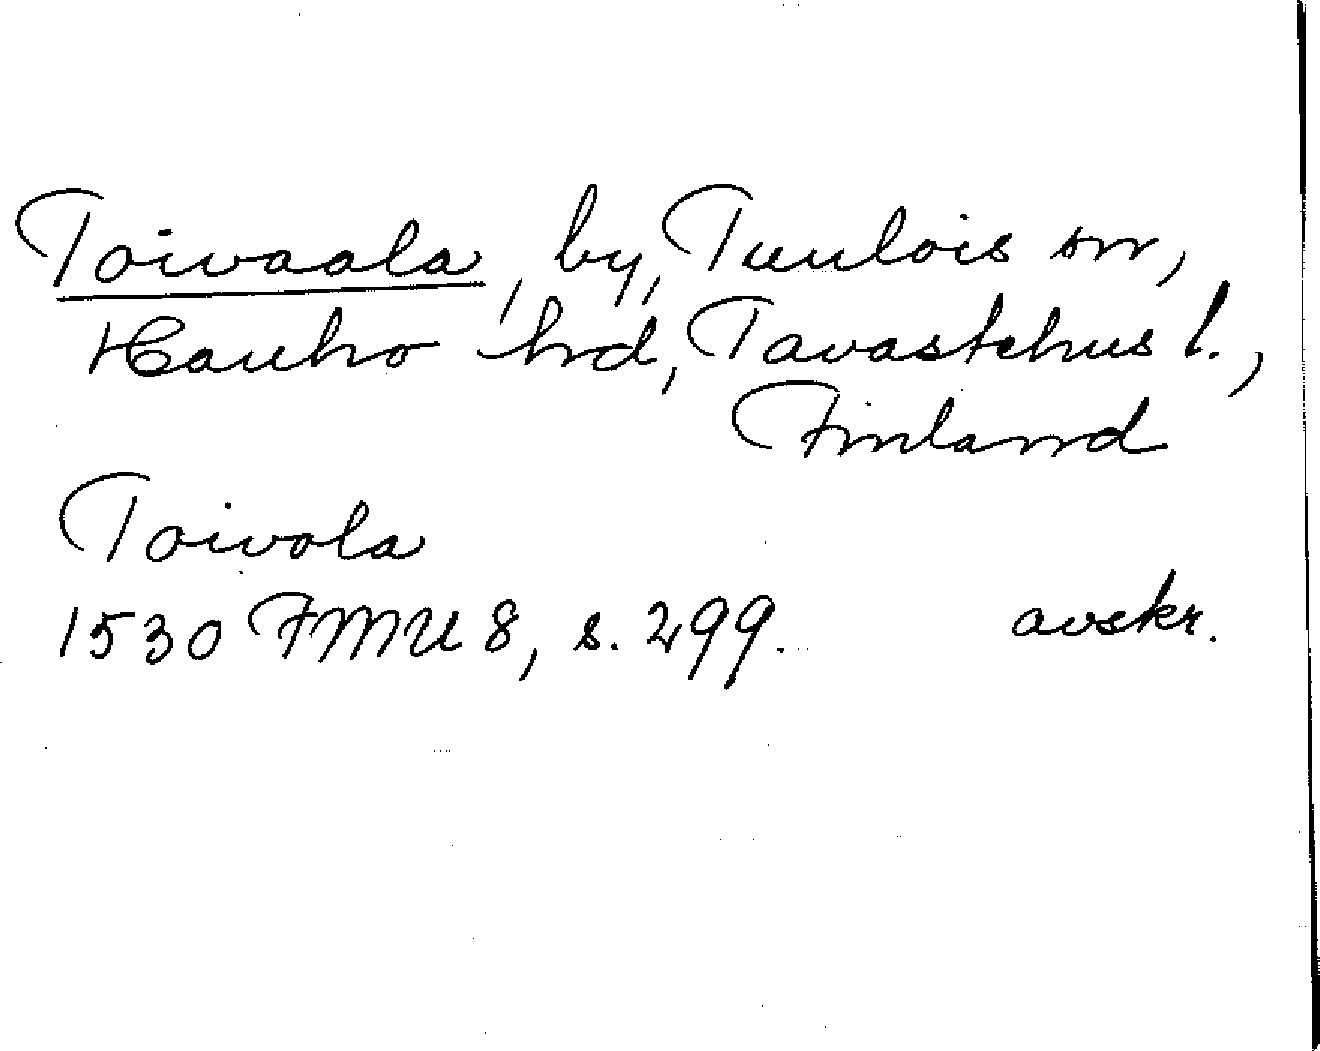 Toivaala, by, Tuulois sn,
Hauho hd, Tavastehus l.,
Finland
Toivola
1530 FMU 8, s. 299. avskr.